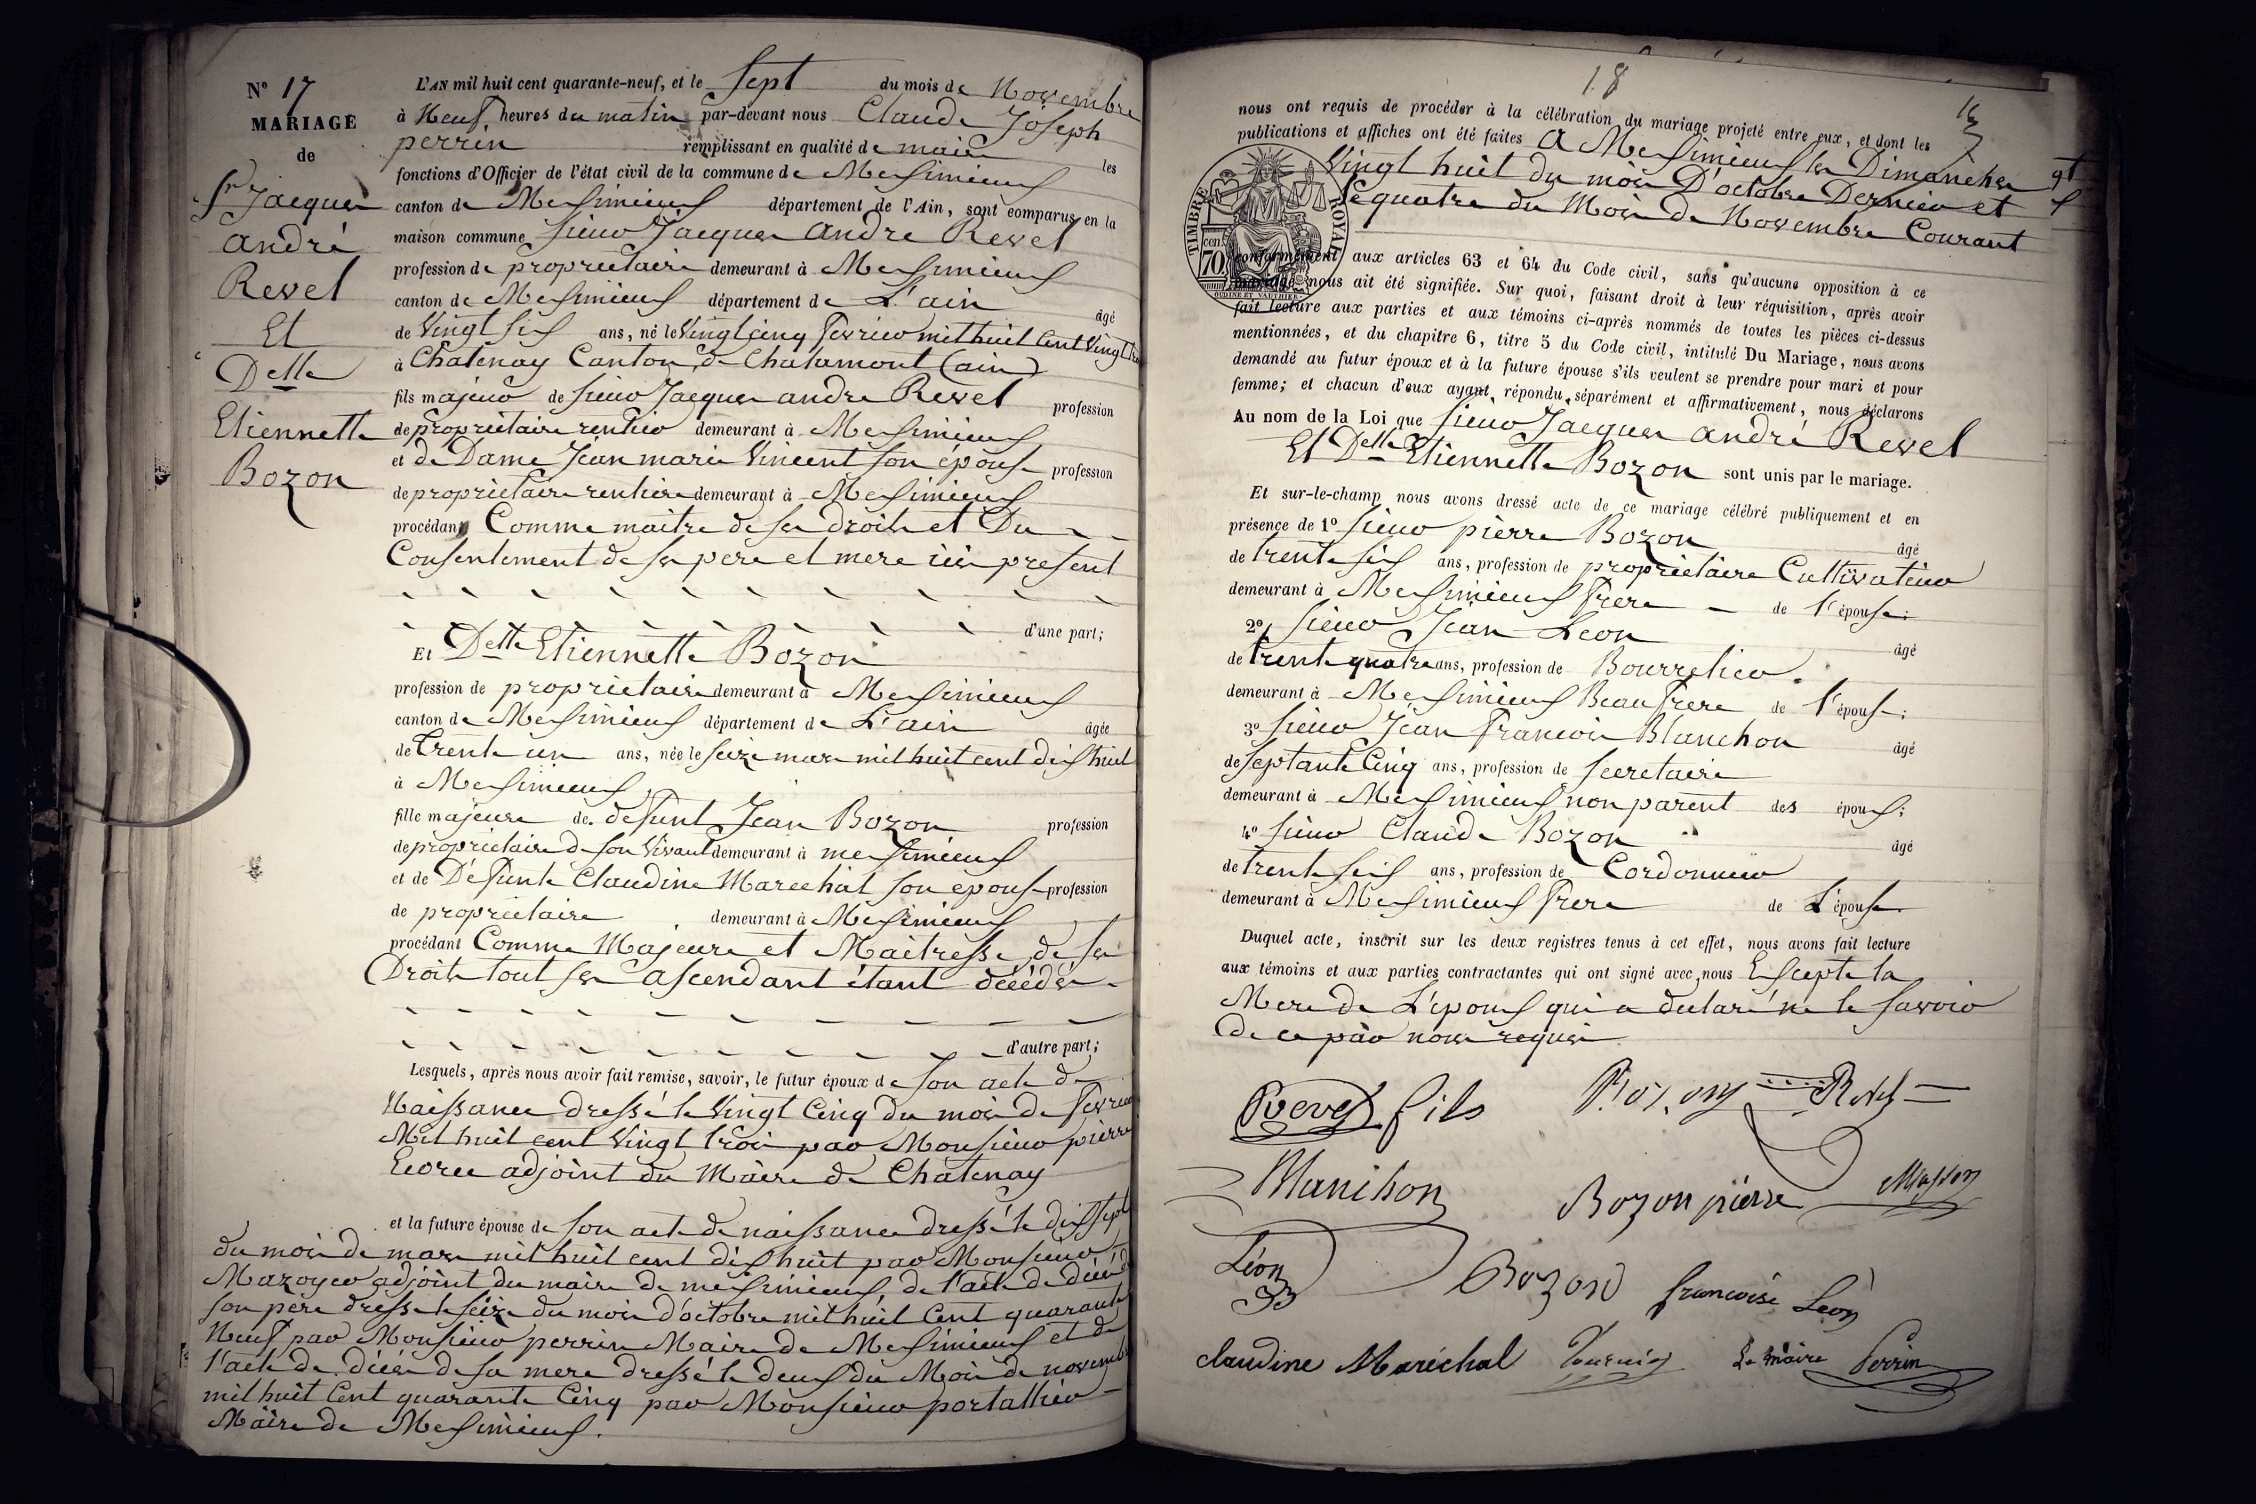 N° 17
MARIAGE
de
Sr Jacques
andré
Revel
Et
Delle
Etiennette
Bozon
L'AN mil huit cent quarante-neuf, et le Sept du mois de Novembre
à Neuf heures du matin par-devant nous Claude Joseph
perrin remplissant en qualité de maire les
fonctions d'Officier de l'état civil de la commune de Messimieux
canton de Messimieux département de l'Ain, sont comparus en la
maison commune Sieur Jacques andre Revel
profession de propriétaire demeurant à Messimieux
canton de Messimieux département de L'ain âgé
de Vingt six ans, né le Vingt cinq fevrier mil huit Cent Vingt trois
à Chatenay Canton de Chalamont (ain)
fils majeur de sieur Jacques andre Revel profession
de propriétaire rentier demeurant à Messimieux
et de Dame Jean marie Vincent son épouse profession
de propriétaire rentière demeurant à Messimieux
procédant Comme maitre de ses droits et Du
Consentement de ses pere et mere ici present
d'une part;
Et Delle Etiennette Bozon
profession de propriétaire demeurant à Messimieux
canton de Messimieux département de L'ain âgée
de trente un ans, née le seize mars mil huit cent dix huit
à Messimieux
fille majeure de défunt Jean Bozon profession
de propriétaire de son Vivant demeurant à messimieux
et de Défunte Claudine Marechal son épouse profession
de propriétaire demeurant à Messimieux
procédant Comme Majeure et Maitresse de ses
Droits tout ses ascendant étant décédés
d'autre part;
Lesquels, après nous avoir fait remise, savoir, le futur époux de son acte de
Naissance dressé le Vingt Cinq du mois de fevrier
Mil huit cent Vingt trois par Monsieur pierre
adjoint du Maire de Châtenay
et la future épouse de son acte de naissance dressé le dix sept
du mois de mars mil huit cent dix huit par Monsieur
Mazoyer adjoint du maire de messimieux, de l'acte de décés de
son pere dressé le seize du mois d'octobre mil huit Cent quarante
Neuf par Monsieur perrin Maire de Messimieux et de
l'acte de décés de sa mere dressé le deux du Mois de novembre
mil huit Cent quarante Cinq par Monsieur portallier
Maire de Messimieux.
18
nous ont requis de procéder à la célébration du mariage projeté entre eux, et dont les
publications et affiches ont été faites A Messimieux les Dimanches
Vingt huit du mois D'octobre Dernier et
le quatre du Mois de Novembre Courant
TIMBRE ROYAL
70 cen
OUDINÉ ET VAUTHIER
conformément aux articles 63 et 64 du Code civil, sans qu'aucune opposition à ce
mariage nous ait été signifiée. Sur quoi, faisant droit à leur réquisition, après avoir
fait lecture aux parties et aux témoins ci-après nommés de toutes les pièces ci-dessus
mentionnées, et du chapitre 6, titre 5 du Code civil, intitulé Du Mariage, nous avons
demandé au futur époux et à la future épouse s'ils veulent se prendre pour mari et pour
femme; et chacun d'eux ayant répondu séparément et affirmativement, nous déclarons
Au nom de la Loi que sieur Jacques andré Revel
Et Delle Etiennette Bozon sont unis par le mariage.
Et sur-le-champ nous avons dressé acte de ce mariage célébré publiquement et en
présence de 1° sieur pierre Bozon âgé
de trente six ans, profession de propriétaire Cultivateur
demeurant à Messimieux frere de l'épouse;
2° sieur Jean Leon âgé
de trente quatre ans, profession de Bourrelier.
demeurant à Messimieux Beau frere de l'épouse;
3° sieur Jean francois Blanchon âgé
de septante Cinq ans, profession de secretaire
demeurant à Messimieux non parent des époux;
4° sieur Claude Bozon âgé
de trente six ans, profession de Cordonnier
demeurant à Messimieux frere de L'épouse.
Duquel acte, inscrit sur les deux registres tenus à cet effet, nous avons fait lecture
aux témoins et aux parties contractantes qui ont signé avec nous Excepté la
Mere de L'époux qui a déclaré ne le savoir
de ce par nous requis
Revel fils Bozon Revel
Blanchon Bozon pierre Masson
Léon Bozon francoise Leon
claudine Maréchal Le maire Perrin